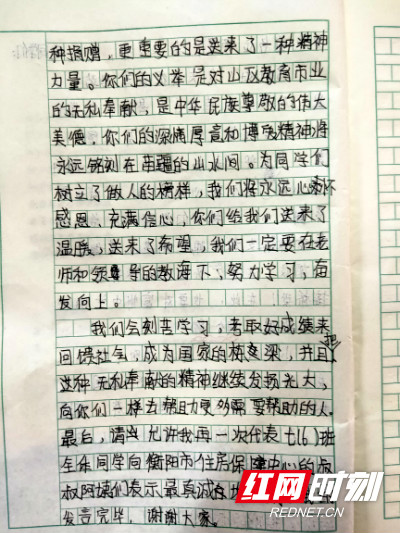 种捐赠，更重要的是送来了一种精神
力量。你们的义举是对山区教育事业
的无私奉献，是中华民族尊敬的伟大
美德，你们的深情厚意和博爱精神将
永远铭刻在苗疆的山水间。为同学们
树立了做人的榜样，我们将永远心怀
感恩，充满信心，你们给我们送来了
温暖，送来了希望，我们一定要在老
师和领导的教诲下，努力学习，奋
发向上。
我们会刻苦学习，考取好成绩来
回馈社会，成为国家的栋梁，并且把
这种无私奉献的精神继续发扬光大，
向你们一样去帮助更多需要帮助的人。
最后，请允许我再一次代表七(6)班
全体同学向衡阳市住房保障中心的叔
叔阿姨们表示最真诚
发言完毕，谢谢大家。
红网时刻
REDNET.CN